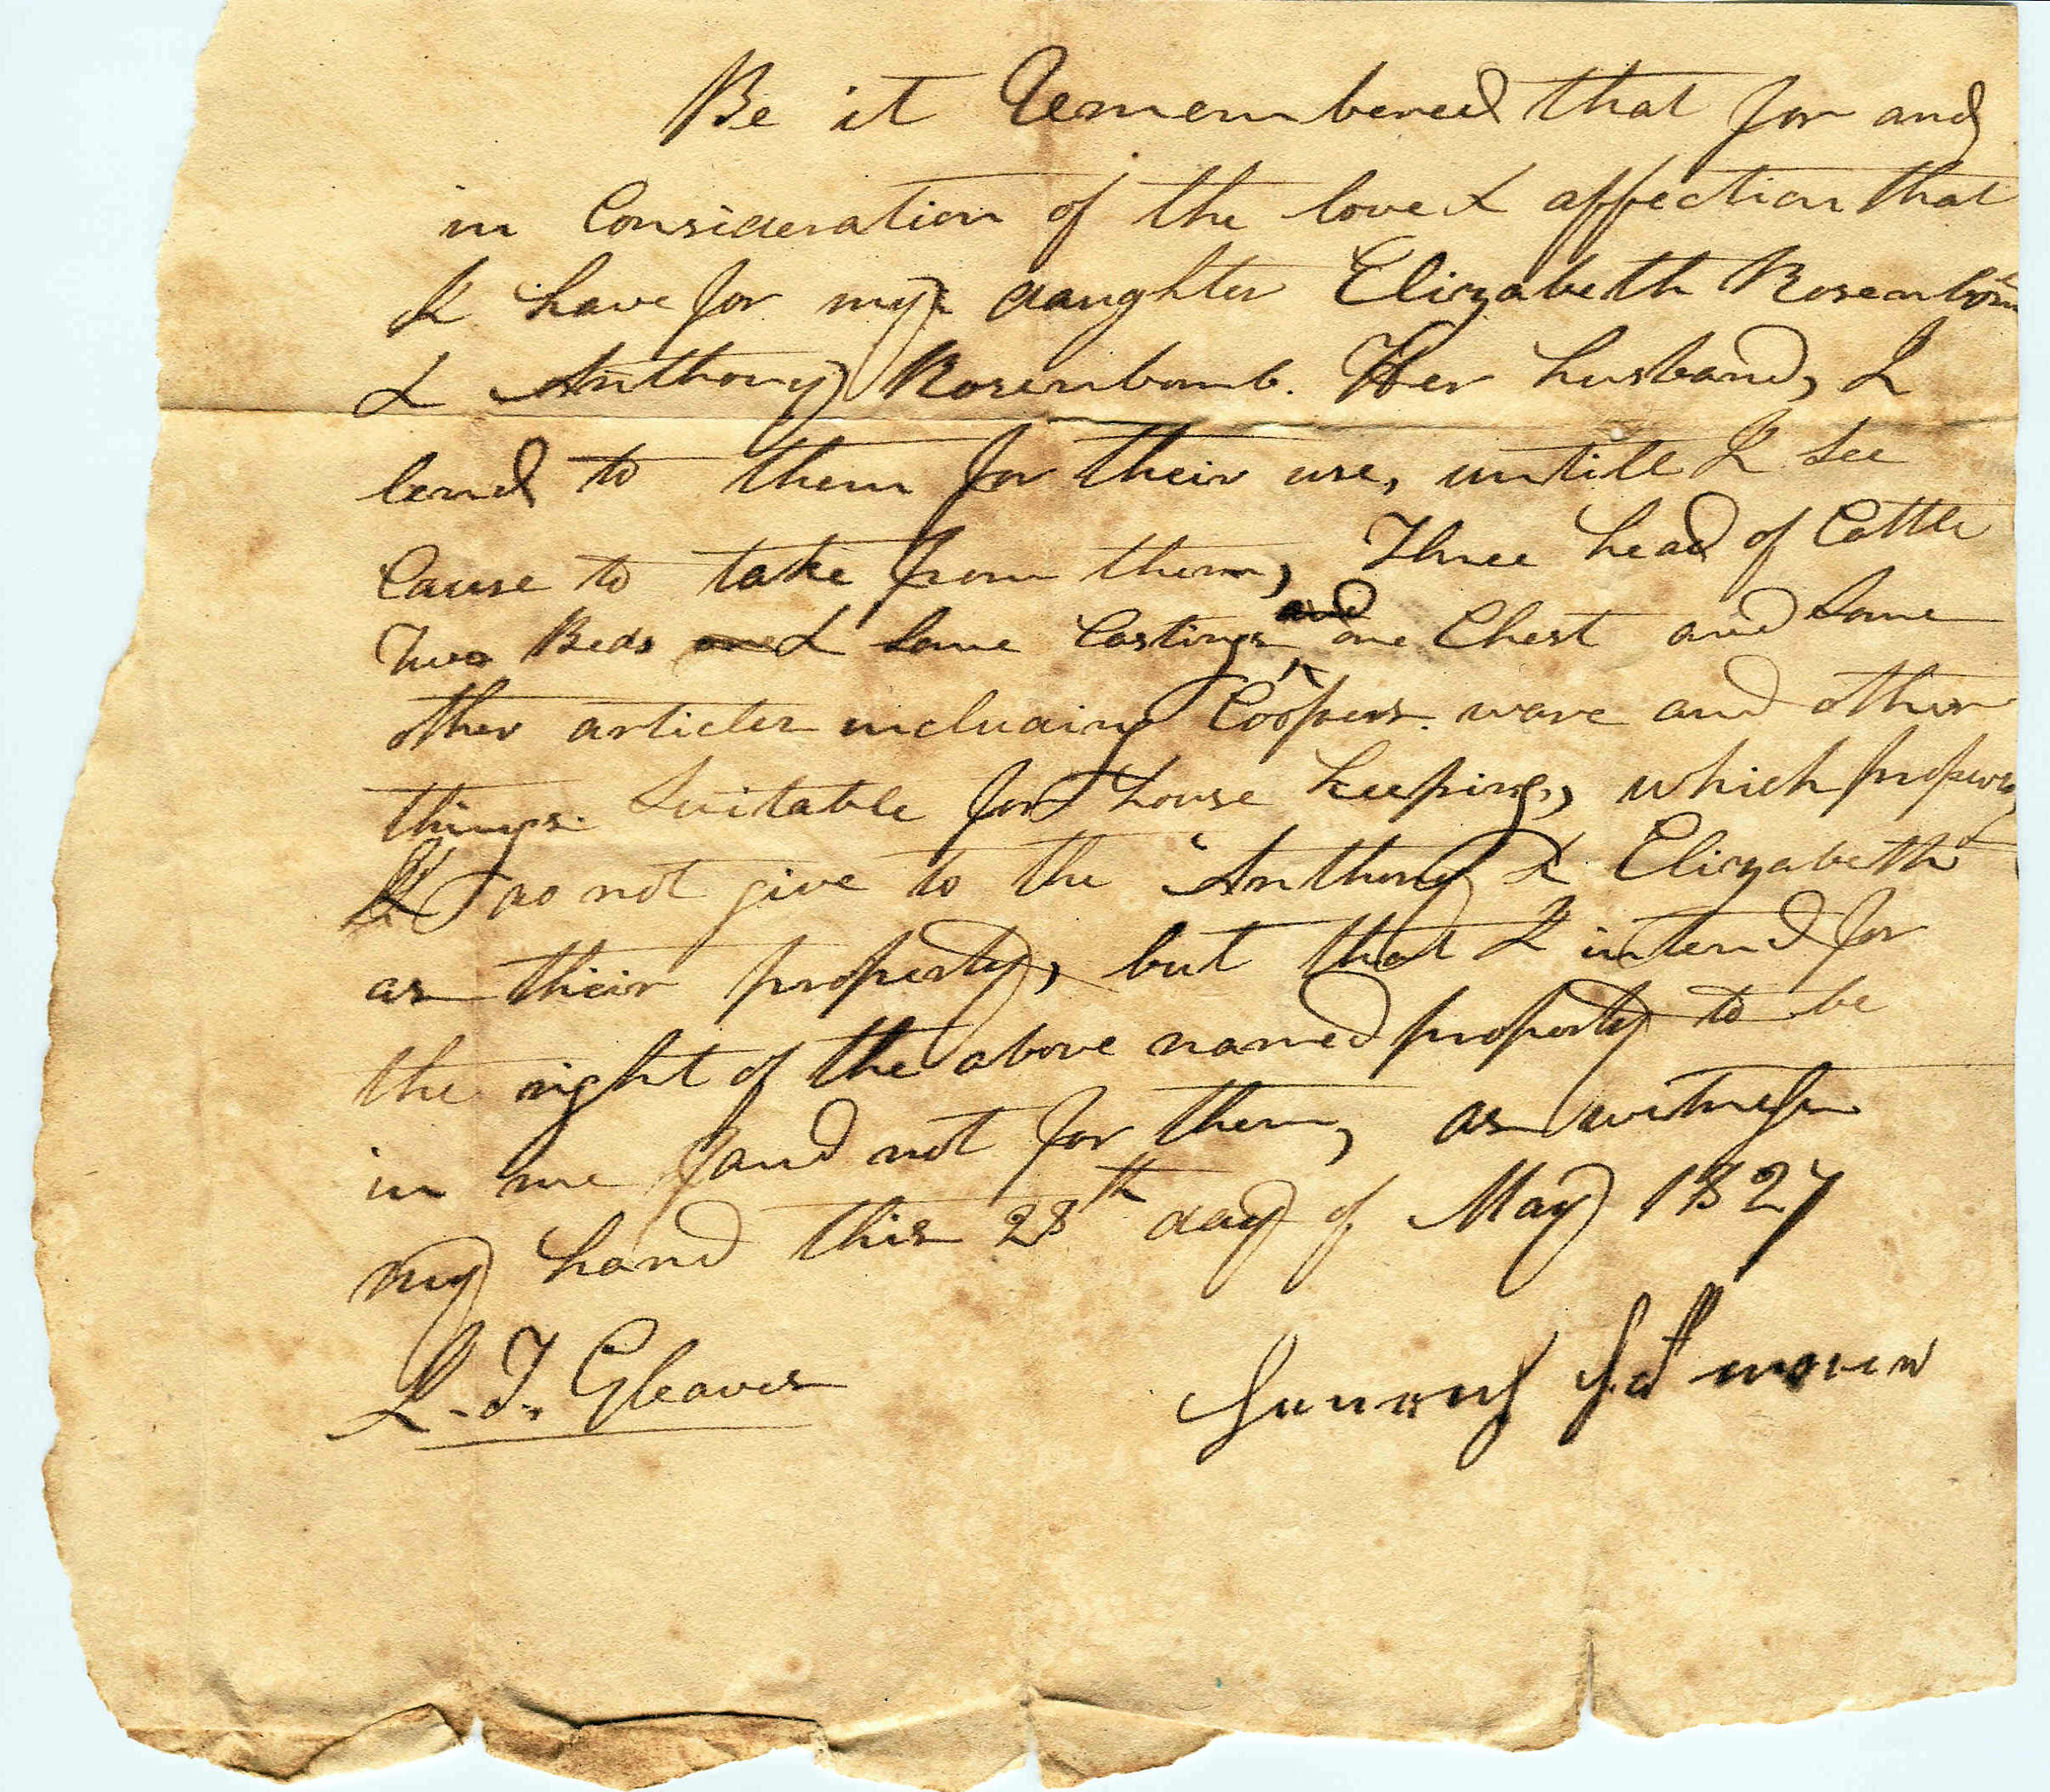 Be it Remembered that for and
in Consideration of the love & affection that
I have for my daughter Elizabeth Rosenbom
& Anthony Rosenbomb. Her husband, I
lend to them for their use, untill I see
Cause to take from them, Three head of Cattle
Two Beds & some Castings and one Chest and some
other articles including Coopers ware and other
things suitable for house keeping, which property
I do not give to the Anthony & Elizabeth
as their property, but that I intend for
the right of the above named property to be
in me and not for them, as witness
my hand this 28th day of May 1827
L. T. Gleaves